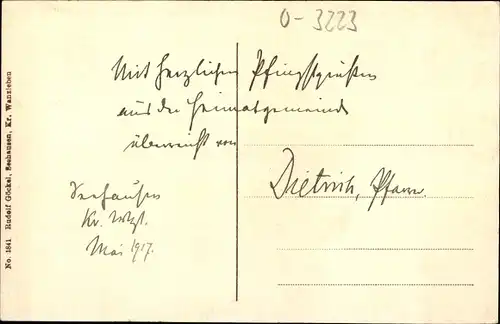 0-3223
Mit herzlichen Pfingstgrüßen
aus der Heimatgemeinde
überreicht von
Dietrich, Pfarrer.
Seehausen
Kr. Wzl.
Mai 1917.
No. 1841 Rudolf Göckel, Seehausen, Kr. Wanzleben